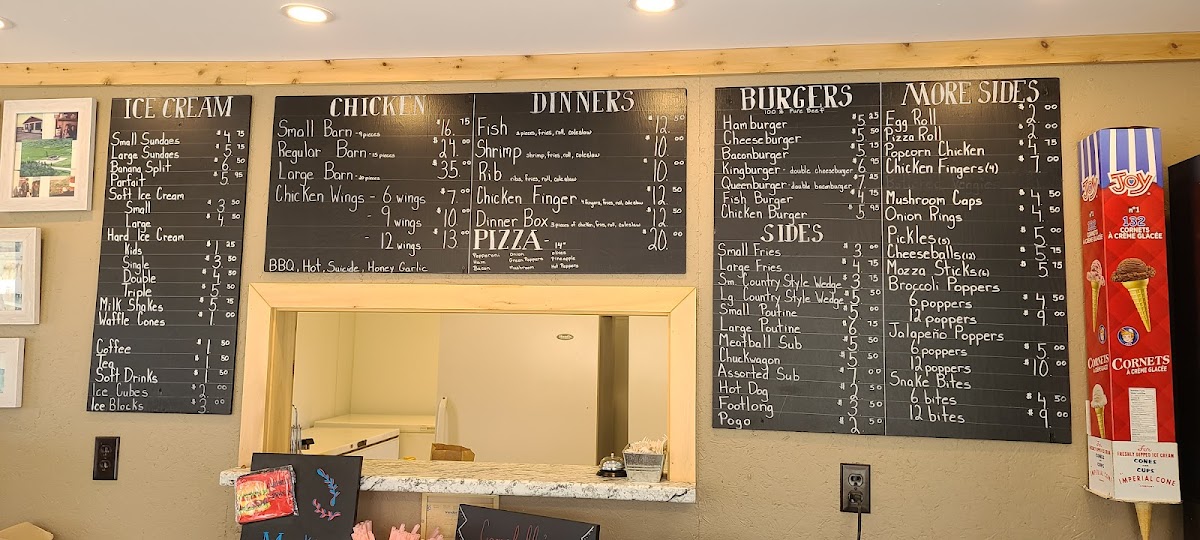 ICE CREAM
Small Sundaes $4.75
Large Sundaes $5.75
Banana Split $6.50
Parfait $5.95
Soft Ice Cream
Small $3.50
Large $4.50
Hard Ice Cream
Kids $1.25
Single $3.50
Double $4.50
Triple $5.50
Milk Shakes $5.75
Waffle Cones $1.00
Coffee $1.50
Tea $1.50
Soft Drinks $1.50
Ice Cubes $2.00
Ice Blocks $3.00
CHICKEN
Small Barn - 9 pieces $16.75
Regular Barn - 15 pieces $24.00
Large Barn - 20 pieces $35.00
Chicken Wings - 6 wings $7.00
- 9 wings $10.00
- 12 wings $13.00
BBQ, Hot, Suicide, Honey Garlic
DINNERS
Fish 2 pieces, fries, roll, coleslaw $12.50
Shrimp shrimp, fries, roll, coleslaw $10.
Rib ribs, fries, roll, coleslaw $10.
Chicken Finger 4 fingers, fries, roll, coleslaw $12.50
Dinner Box 3 pieces of chicken, fries, roll, coleslaw $12.50
PIZZA - 14" $20.00
Pepperoni Onion Olives
Ham Green Peppers Pineapple
Bacon Mushroom Hot Peppers
BURGERS
100% Pure Beef
Hamburger $5.25
Cheeseburger $5.50
Baconburger $5.95
Kingburger - double cheeseburger $6.95
Queenburger - double baconburger $7.25
Fish Burger $4.75
Chicken Burger $5.95
SIDES
Small Fries $3.00
Large Fries $4.75
Sm. Country Style Wedge $3.75
Lg. Country Style Wedge $5.50
Small Poutine $5.
Large Poutine $6.75
Meatball Sub $5.50
Chuckwagon $5.50
Assorted Sub $7.00
Hot Dog $2.50
Footlong $3.50
Pogo $2.50
MORE SIDES
Egg Roll $2.00
Pizza Roll $2.00
Popcorn Chicken $4.75
Chicken Fingers (4) $7.00
Mushroom Caps $4.50
Onion Rings $4.50
Pickles (5) $5.
Cheeseballs (12) $5.75
Mozza Sticks (6) $5.75
Broccoli Poppers
6 poppers $4.50
12 poppers $9.00
Jalapeño Poppers
6 poppers $5.00
12 poppers $10.00
Snake Bites
6 bites $4.50
12 bites $9.00
JOY
n°1
132
CORNETS
À CRÈME GLACÉE
CORNETS
À CRÈME GLACÉE
Joy
FRESHLY DIPPED ICE CREAM
CONES
AND
CUPS
IMPERIAL CONE